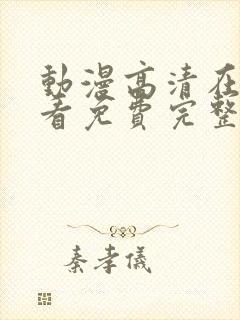 動漫高清在
看免費完整
秦孝儀